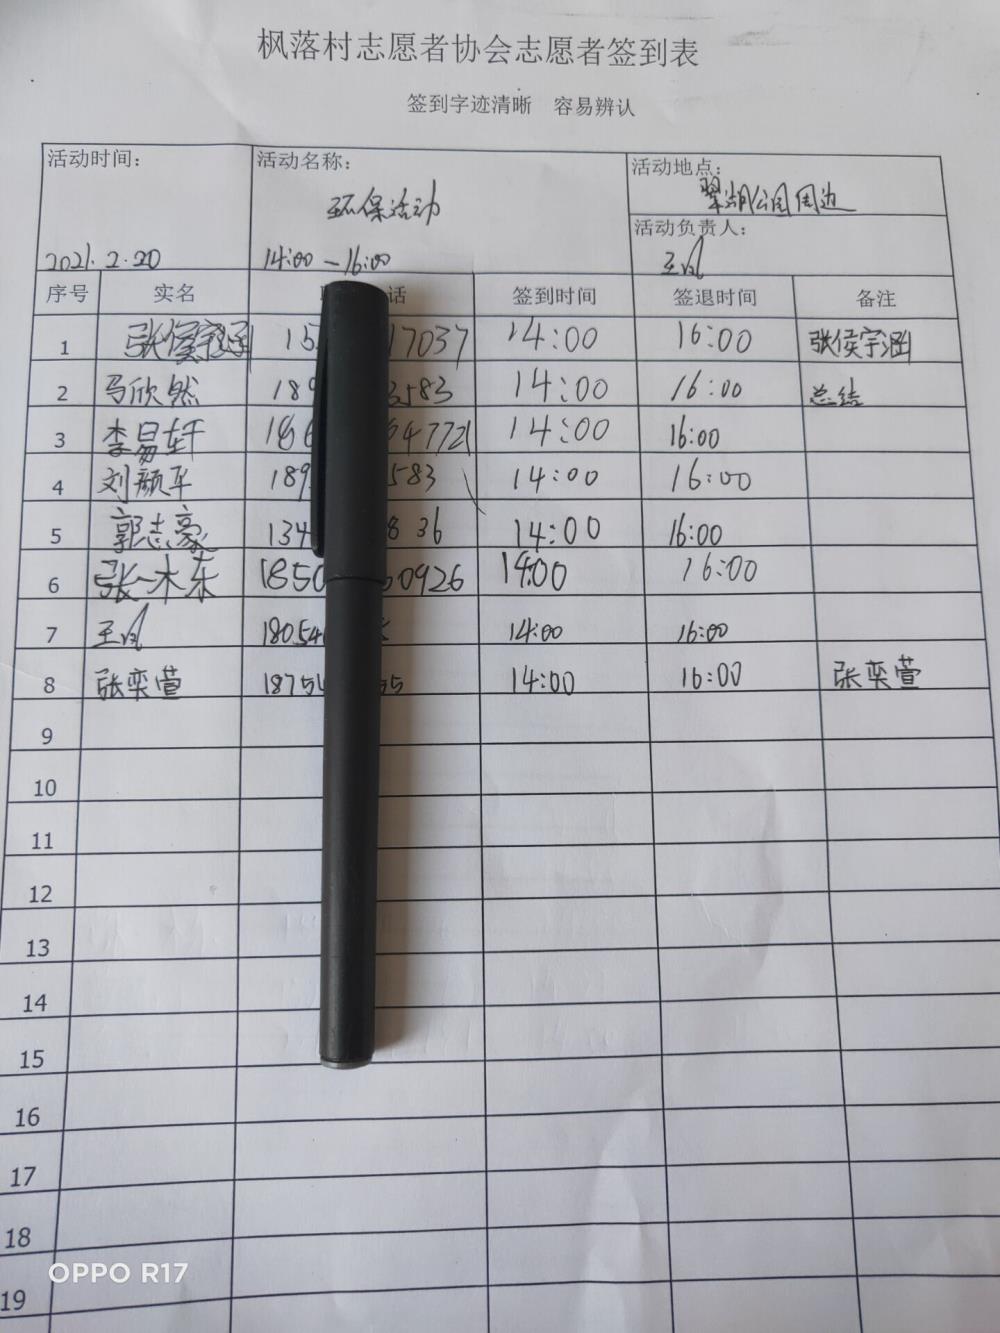 枫落村志愿者协会志愿者签到表
签到字迹清晰 容易辨认
活动时间: 活动名称: 活动地点:
环保活动 翠湖公园周边
活动负责人:
2021.2.20 14:00-16:00 王凤
序号 实名 话 签到时间 签退时间 备注
1 张侯宇涵 15 17037 14:00 16:00 张侯宇涵
2 马欣然 189 3583 14:00 16:00 总结
3 李易轩 186 64772 14:00 16:00
4 刘颜军 189 583 14:00 16:00
5 郭志豪 134 8 36 14:00 16:00
6 张一木东 1850 60926 14:00 16:00
7 王凤 18054 14:00 16:00
8 张奕萱 1875 55 14:00 16:00 张奕萱
9
10
11
12
13
14
15
16
17
18
19
OPPO R17